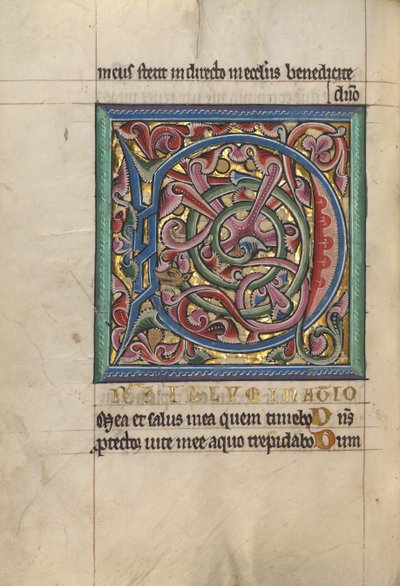 meus stetit in directo in eccliis benedicā te
dñe
D
NS ILLVMINATIO
Mea et salus mea quem timebo Dn̄s
ꝓtector uite mee a quo trepidabo Dum